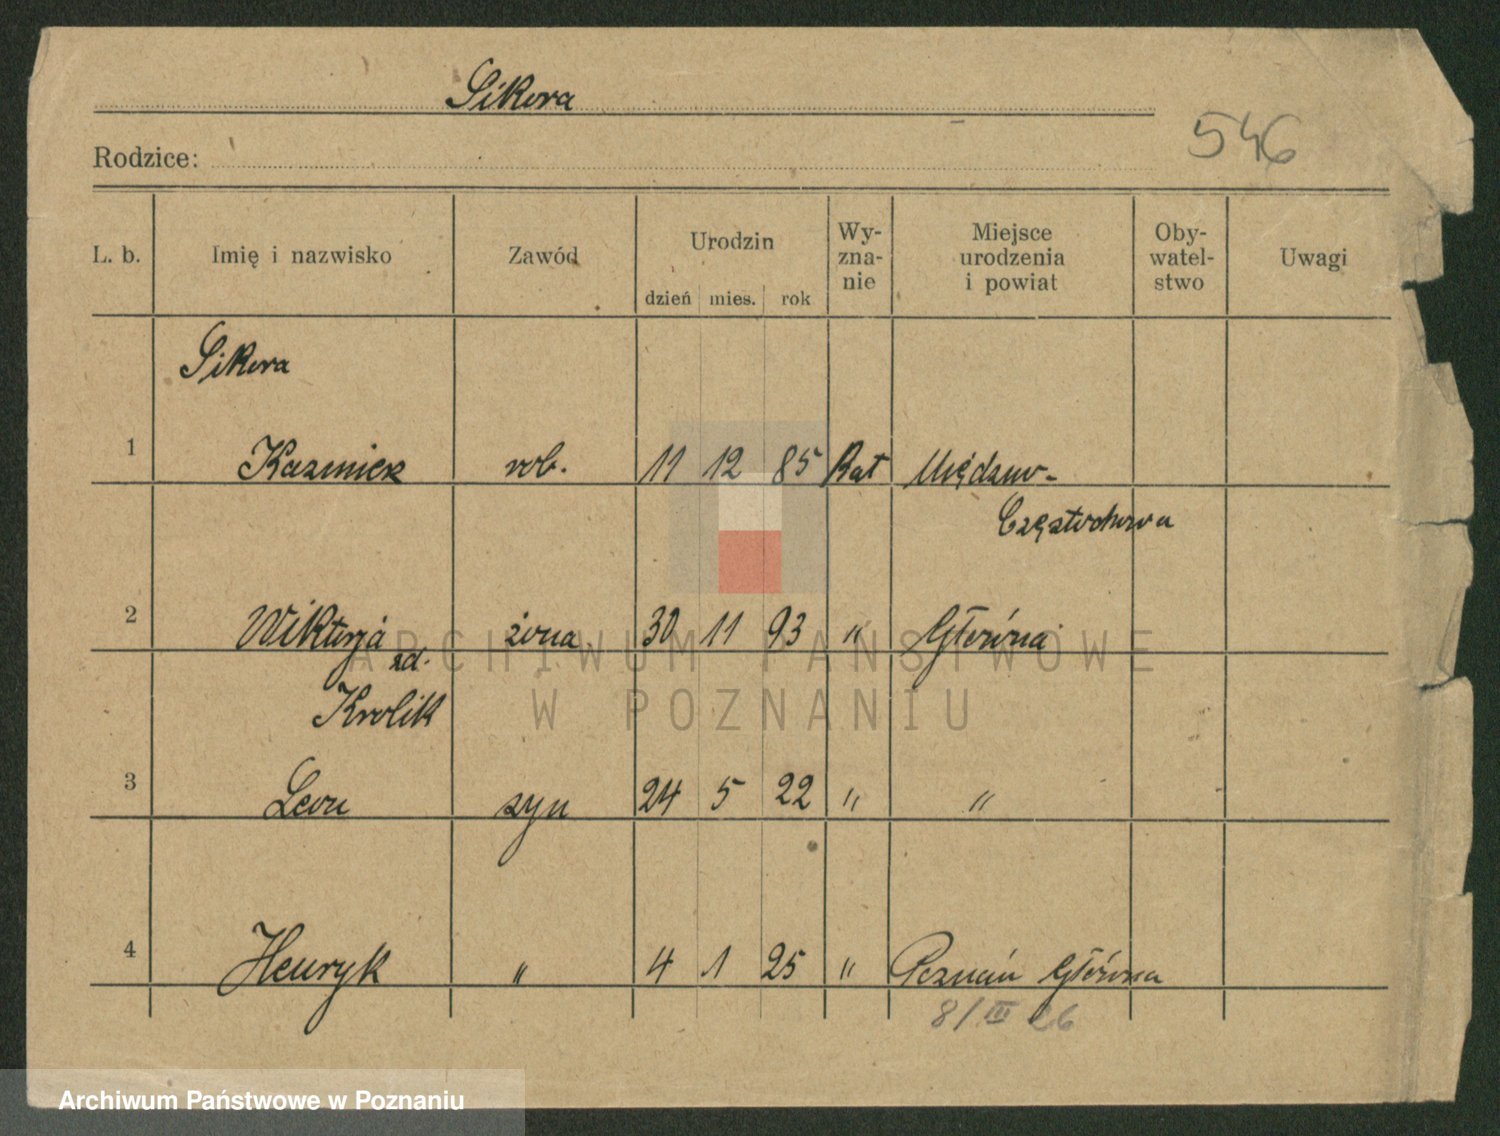 Sikora
546
Rodzice:
L. b. Imię i nazwisko Zawód Urodzin dzień mies. rok Wy-zna-nie Miejsce urodzenia i powiat Oby-watel-stwo Uwagi
Sikora
1 Kazmierz rob. 11 12 85 Kat
Częstochowa
2 Wiktorja żona 30 11 93 " Główna
zd.
Krolik
3 Leon syn 24 5 22 " "
4 Henryk " 4 1 25 " Poznań Główna
8/III 26
ARCHIWUM PAŃSTWOWE
W POZNANIU
Archiwum Państwowe w Poznaniu